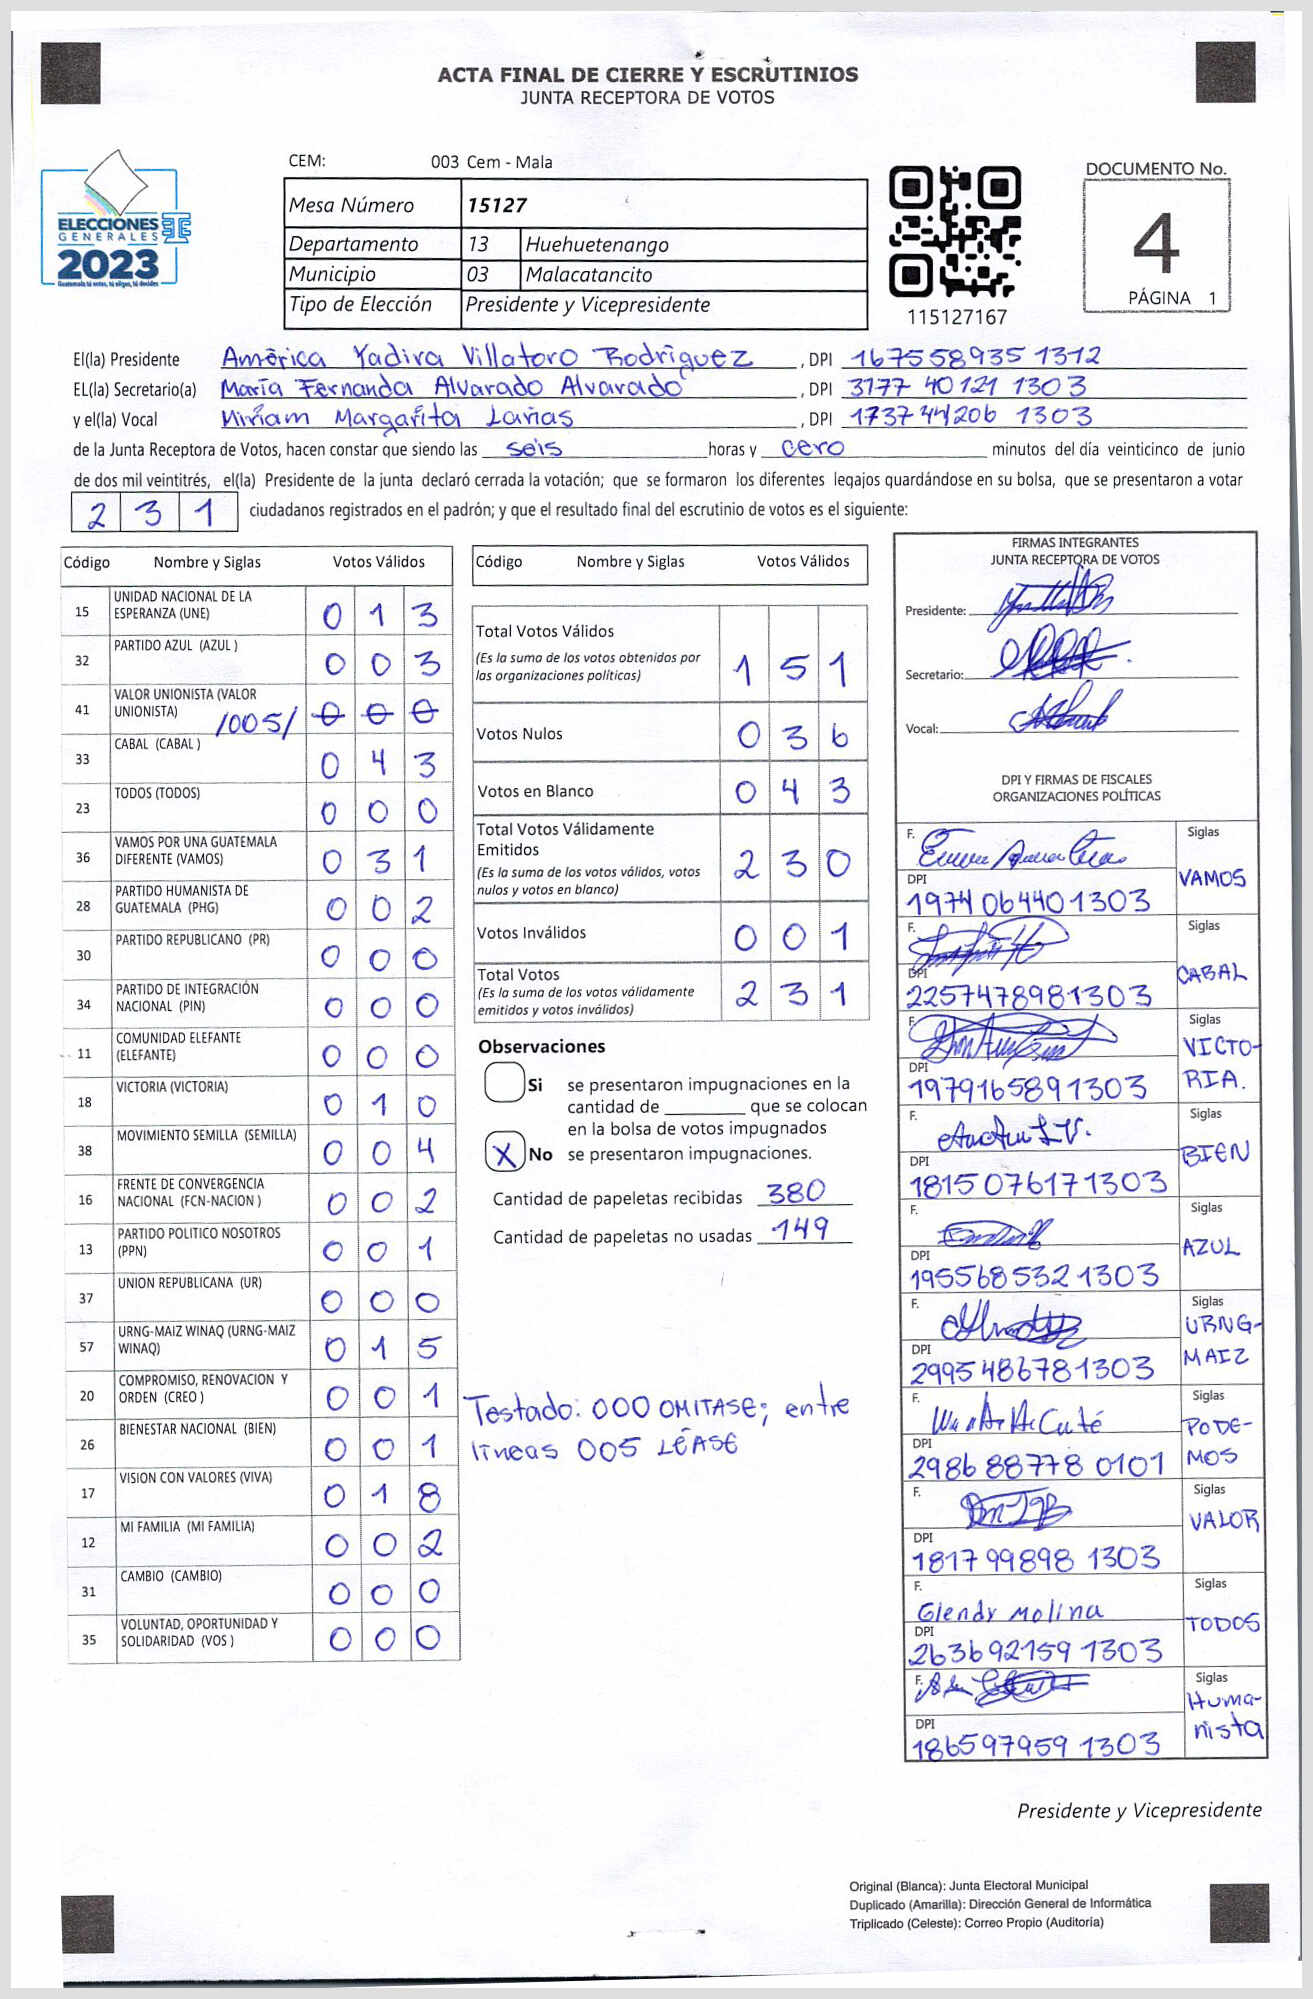 ACTA FINAL DE CIERRE Y ESCRUTINIOS
JUNTA RECEPTORA DE VOTOS
ELECCIONES
GENERALES
2023
Guatemala: tú votas, tú eliges, tú decides
CEM: 003 Cem - Mala
Mesa Número 15127
Departamento 13 Huehuetenango
Municipio 03 Malacatancito
Tipo de Elección Presidente y Vicepresidente
115127167
DOCUMENTO No.
4
PÁGINA 1
El(la) Presidente América Yadira Villatoro Rodríguez, DPI 167558935 1312
EL(la) Secretario(a) María Fernanda Alvarado Alvarado, DPI 3177 40121 1303
y el(la) Vocal Miriam Margarita Larias, DPI 1737 44206 1303
de la Junta Receptora de Votos, hacen constar que siendo las seis horas y cero minutos del día veinticinco de junio
de dos mil veintitrés, el(la) Presidente de la junta declaró cerrada la votación; que se formaron los diferentes legajos guardándose en su bolsa, que se presentaron a votar
2 3 1 ciudadanos registrados en el padrón; y que el resultado final del escrutinio de votos es el siguiente:
Código Nombre y Siglas Votos Válidos
15 UNIDAD NACIONAL DE LA ESPERANZA (UNE) 0 1 3
32 PARTIDO AZUL (AZUL ) 0 0 3
41 VALOR UNIONISTA (VALOR UNIONISTA) /005/ 0 0 0
33 CABAL (CABAL ) 0 4 3
23 TODOS (TODOS) 0 0 0
36 VAMOS POR UNA GUATEMALA DIFERENTE (VAMOS) 0 3 1
28 PARTIDO HUMANISTA DE GUATEMALA (PHG) 0 0 2
30 PARTIDO REPUBLICANO (PR) 0 0 0
34 PARTIDO DE INTEGRACIÓN NACIONAL (PIN) 0 0 0
11 COMUNIDAD ELEFANTE (ELEFANTE) 0 0 0
18 VICTORIA (VICTORIA) 0 1 0
38 MOVIMIENTO SEMILLA (SEMILLA) 0 0 4
16 FRENTE DE CONVERGENCIA NACIONAL (FCN-NACION ) 0 0 2
13 PARTIDO POLITICO NOSOTROS (PPN) 0 0 1
37 UNION REPUBLICANA (UR) 0 0 0
57 URNG-MAIZ WINAQ (URNG-MAIZ WINAQ) 0 1 5
20 COMPROMISO, RENOVACION Y ORDEN (CREO ) 0 0 1
26 BIENESTAR NACIONAL (BIEN) 0 0 1
17 VISION CON VALORES (VIVA) 0 1 8
12 MI FAMILIA (MI FAMILIA) 0 0 2
31 CAMBIO (CAMBIO) 0 0 0
35 VOLUNTAD, OPORTUNIDAD Y SOLIDARIDAD (VOS ) 0 0 0
Código Nombre y Siglas Votos Válidos
Total Votos Válidos
(Es la suma de los votos obtenidos por
las organizaciones políticas) 1 5 1
Votos Nulos 0 3 6
Votos en Blanco 0 4 3
Total Votos Válidamente
Emitidos
(Es la suma de los votos válidos, votos
nulos y votos en blanco) 2 3 0
Votos Inválidos 0 0 1
Total Votos
(Es la suma de los votos válidamente
emitidos y votos inválidos) 2 3 1
Observaciones
Si se presentaron impugnaciones en la
cantidad de ________ que se colocan
en la bolsa de votos impugnados
X No se presentaron impugnaciones.
Cantidad de papeletas recibidas 380
Cantidad de papeletas no usadas 149
Testado: 000 OMITASE; entre
líneas 005 LÉASE
FIRMAS INTEGRANTES
JUNTA RECEPTORA DE VOTOS
Presidente:
Secretario:
Vocal:
DPI Y FIRMAS DE FISCALES
ORGANIZACIONES POLÍTICAS
F. Siglas
VAMOS
DPI
1974 06440 1303
F. Siglas
CABAL
DPI
2257478981303
F. Siglas
VICTO-
RIA.
DPI
1979165891303
F. Siglas
BIEN
DPI
1815 07617 1303
F. Siglas
AZUL
DPI
195568532 1303
F. Siglas
URNG-
MAIZ
DPI
2995 48678 1303
F. Siglas
PODE-
MOS
DPI
2986 88778 0101
F. Siglas
VALOR
DPI
1817 99898 1303
F. Siglas
Glendy Molina
TODOS
DPI
263692159 1303
F. Siglas
Huma-
nista
DPI
186597959 1303
Presidente y Vicepresidente
Original (Blanca): Junta Electoral Municipal
Duplicado (Amarilla): Dirección General de Informática
Triplicado (Celeste): Correo Propio (Auditoría)